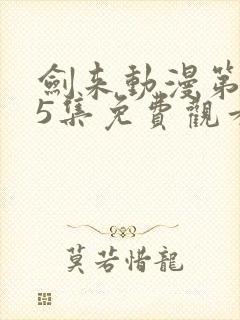 劍来動漫第
5集免費觀
莫若惜龍